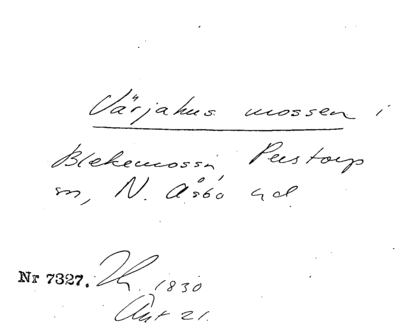 Värjahus mossen i
Blekemossa, Perstorp
sn, N. Åsbo hd.
Nr 7327. 1830
Akt 21.